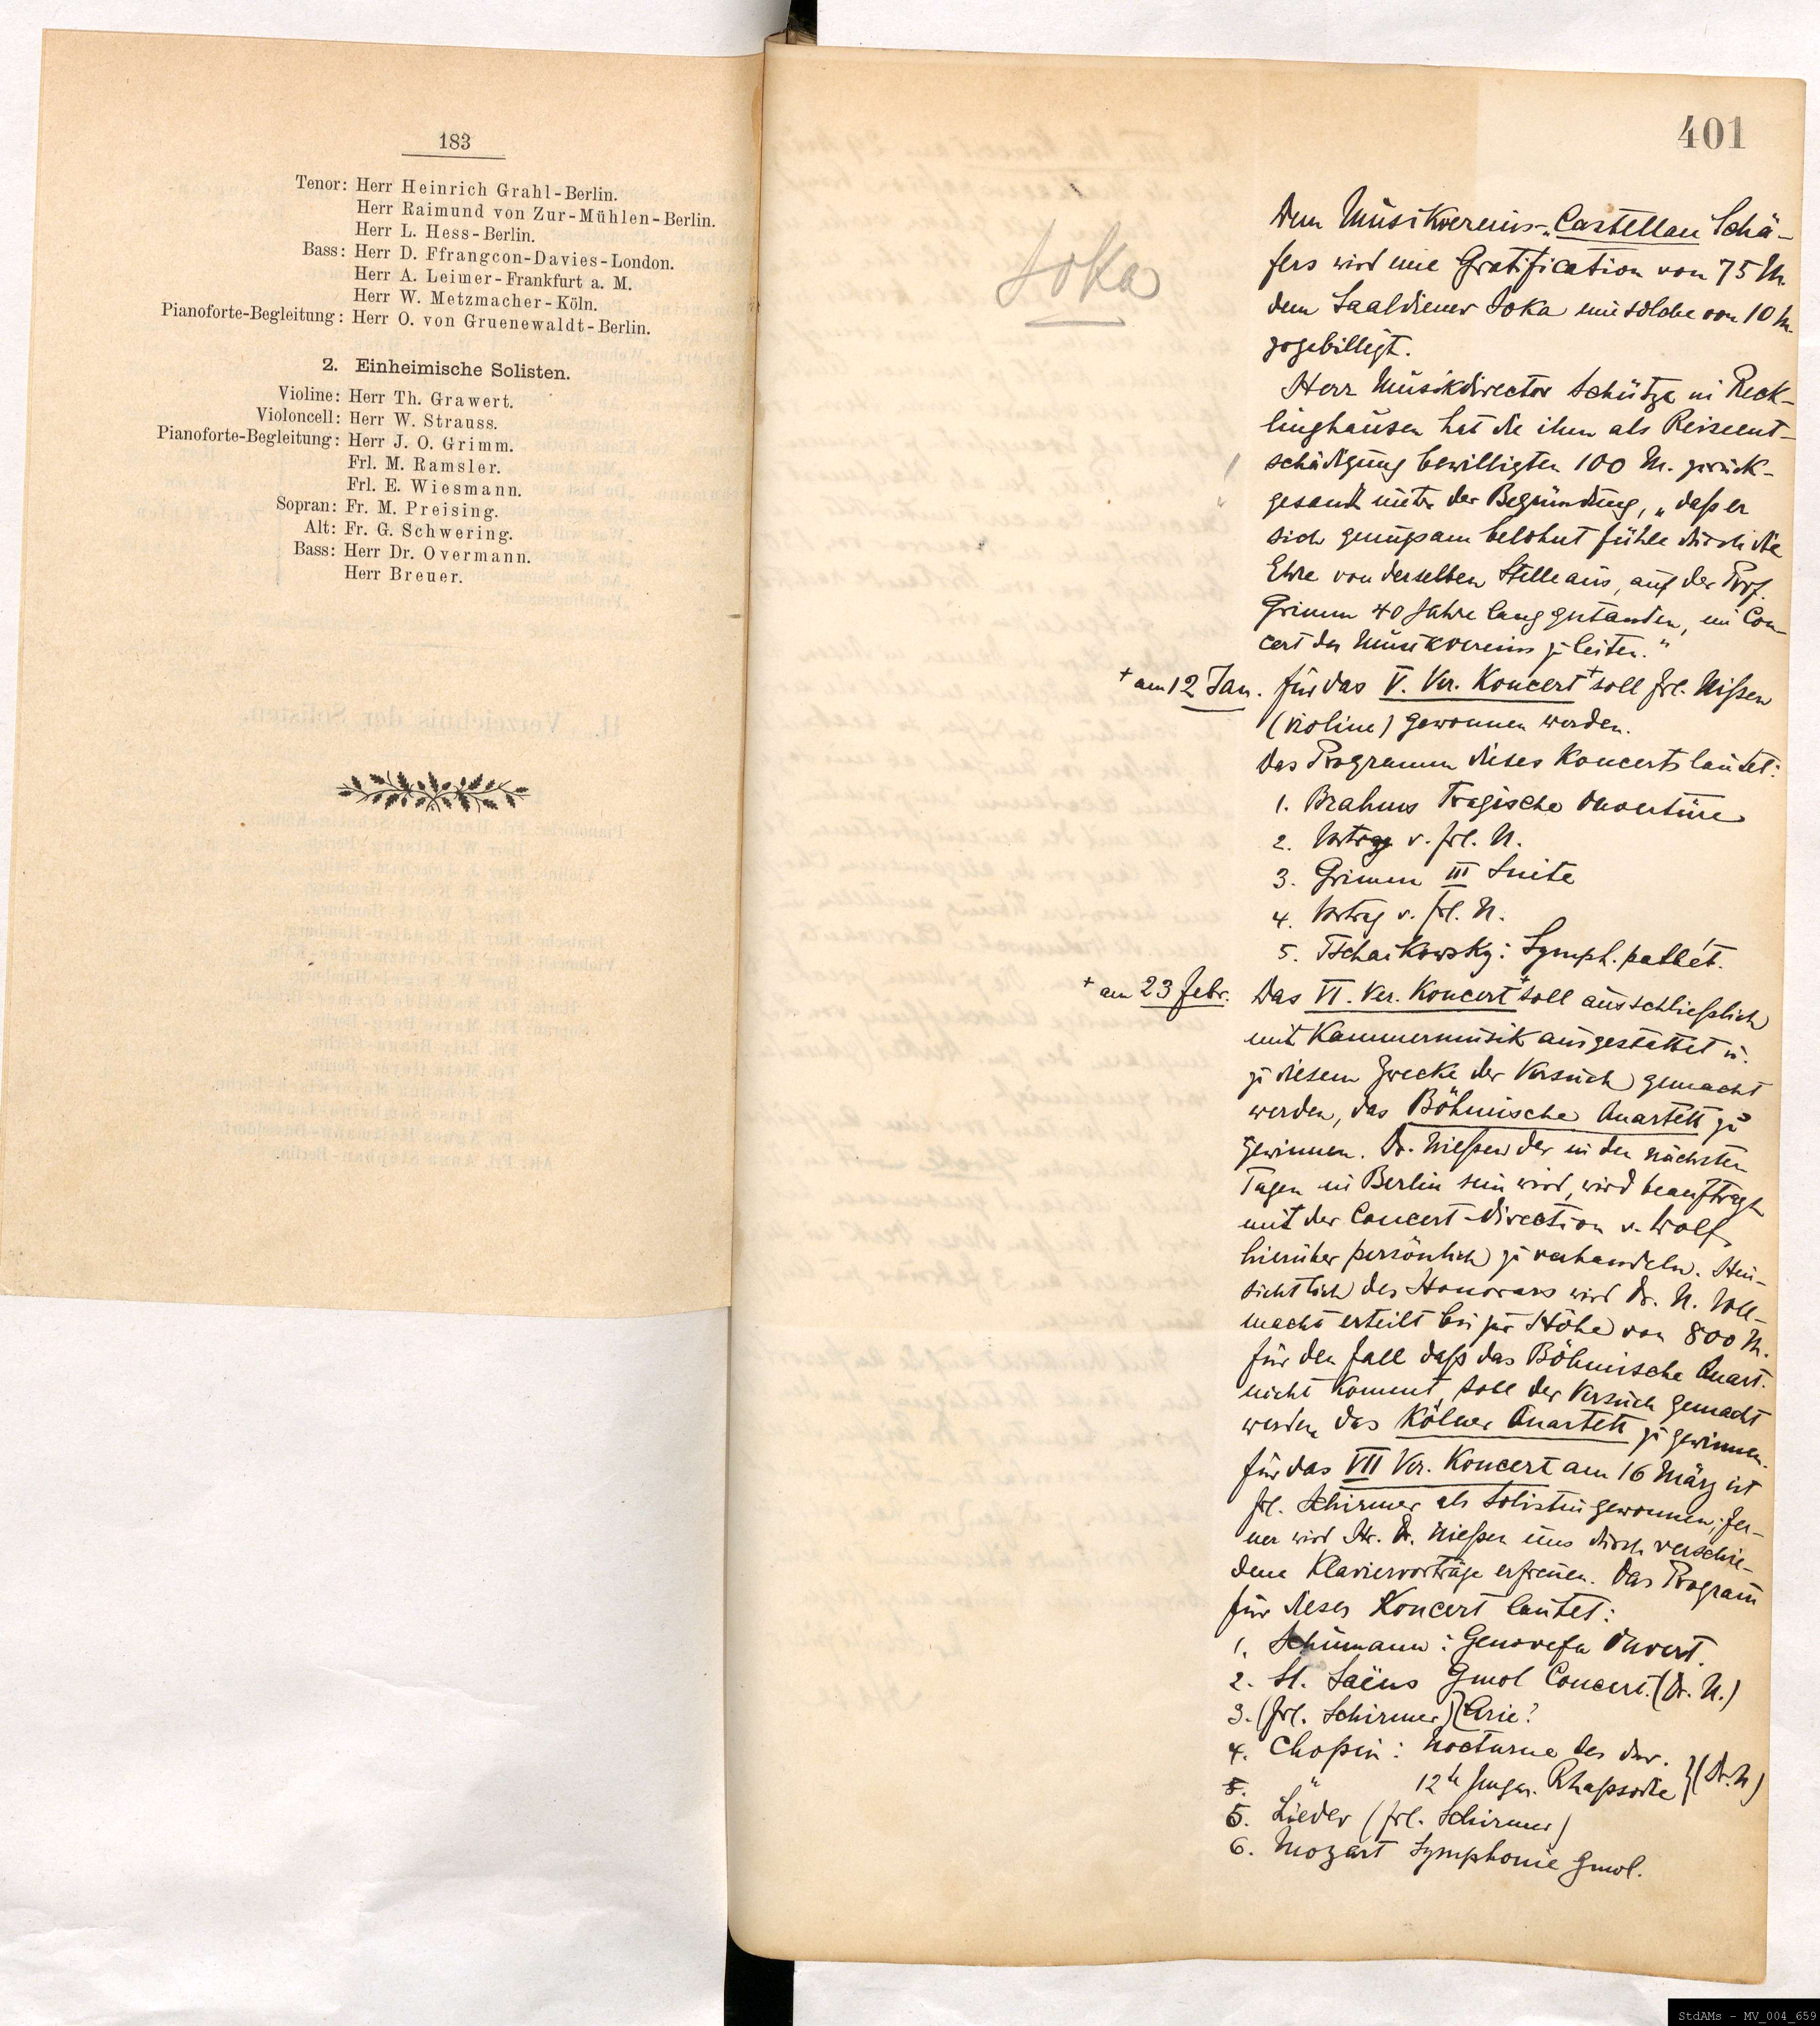 183
Tenor: Herr Heinrich Grahl-Berlin.
Herr Raimund von Zur-Mühlen-Berlin.
Herr L. Hess-Berlin.
Bass: Herr D. Ffrangcon-Davies-London.
Herr A. Leimer-Frankfurt a. M.
Herr W. Metzmacher-Köln.
Pianoforte-Begleitung: Herr O. von Gruenewaldt-Berlin.
2. Einheimische Solisten.
Violine: Herr Th. Grawert.
Violoncell: Herr W. Strauss.
Pianoforte-Begleitung: Herr J. O. Grimm.
Frl. M. Ramsler.
Frl. E. Wiesmann.
Sopran: Fr. M. Preising.
Alt: Fr. G. Schwering.
Bass: Herr Dr. Overmann.
Herr Breuer.
401
Soka
Dem Musikvereins-„Castellan Schä-
fers wird eine Gratification von 75 M.
dem Saaldiener Soka eine solche von 10 M.
zugebilligt.
Herr Musikdirector Schütze in Reck-
linghausen hat die ihm als Reiseent-
schädigung bewilligten 100 M. zurück-
gesandt unter der Begründung, „daß er
sich genugsam belohnt fühle durch die
Ehre von derselben Stelle aus, auf der Prof.
Grimm 40 Jahre lang gestanden, ein Con-
cert des Musikvereins zu leiten."
+ am 12 Jan. Für das V. Ver. Koncert + soll Frl. Nißen
(Violine) gewonnen werden.
Das Programm dieses Koncerts lautet:
1. Brahms Tragische Ouvertüre
2. Vortrag v. Frl. N.
3. Grimm III Suite
4. Vortrag v. Frl. N.
5. Tschaikowsky: Symph. pathét.
+ am 23 Febr. Das VI. Ver. Koncert + soll ausschließlich
mit Kammermusik ausgestattet u.
zu diesem Zwecke der Versuch gemacht
werden, das Böhmische Quartett zu
gewinnen. Dr. Nießen der in den nächsten
Tagen in Berlin sein wird, wird beauftragt
mit der Concert-Direction v. Wolf
hierüber persönlich zu verhandeln. Hin-
sichtlich des Honorars wird Dr. N. Voll-
macht erteilt bis zur Höhe von 800 M.
Für den Fall daß das Böhmische Quart.
nicht kommt, soll der Versuch gemacht
werden das Kölner Quartett zu gewinnen.
Für das VII Ver. Koncert am 16 März ist
Frl. Schirmer als Solistin gewonnen; fer-
ner wird Hr. Dr. Nießen uns durch verschie-
dene Klaviervorträge erfreuen. Das Program̄
für dieses Koncert lautet:
1. Schumann: Genovefa Ouvert.
2. St. Saëns Gmol Concert. (Dr. N.)
3. (Frl. Schirmer) (Arie?
4. Chopin: Nocturne Des dur.
5. " 12te ungar. Rhapsodie } (Dr. N)
5. Lieder (Frl. Schirmer)
6. Mozart Symphonie Gmol.
StdAMs - MV_004_659